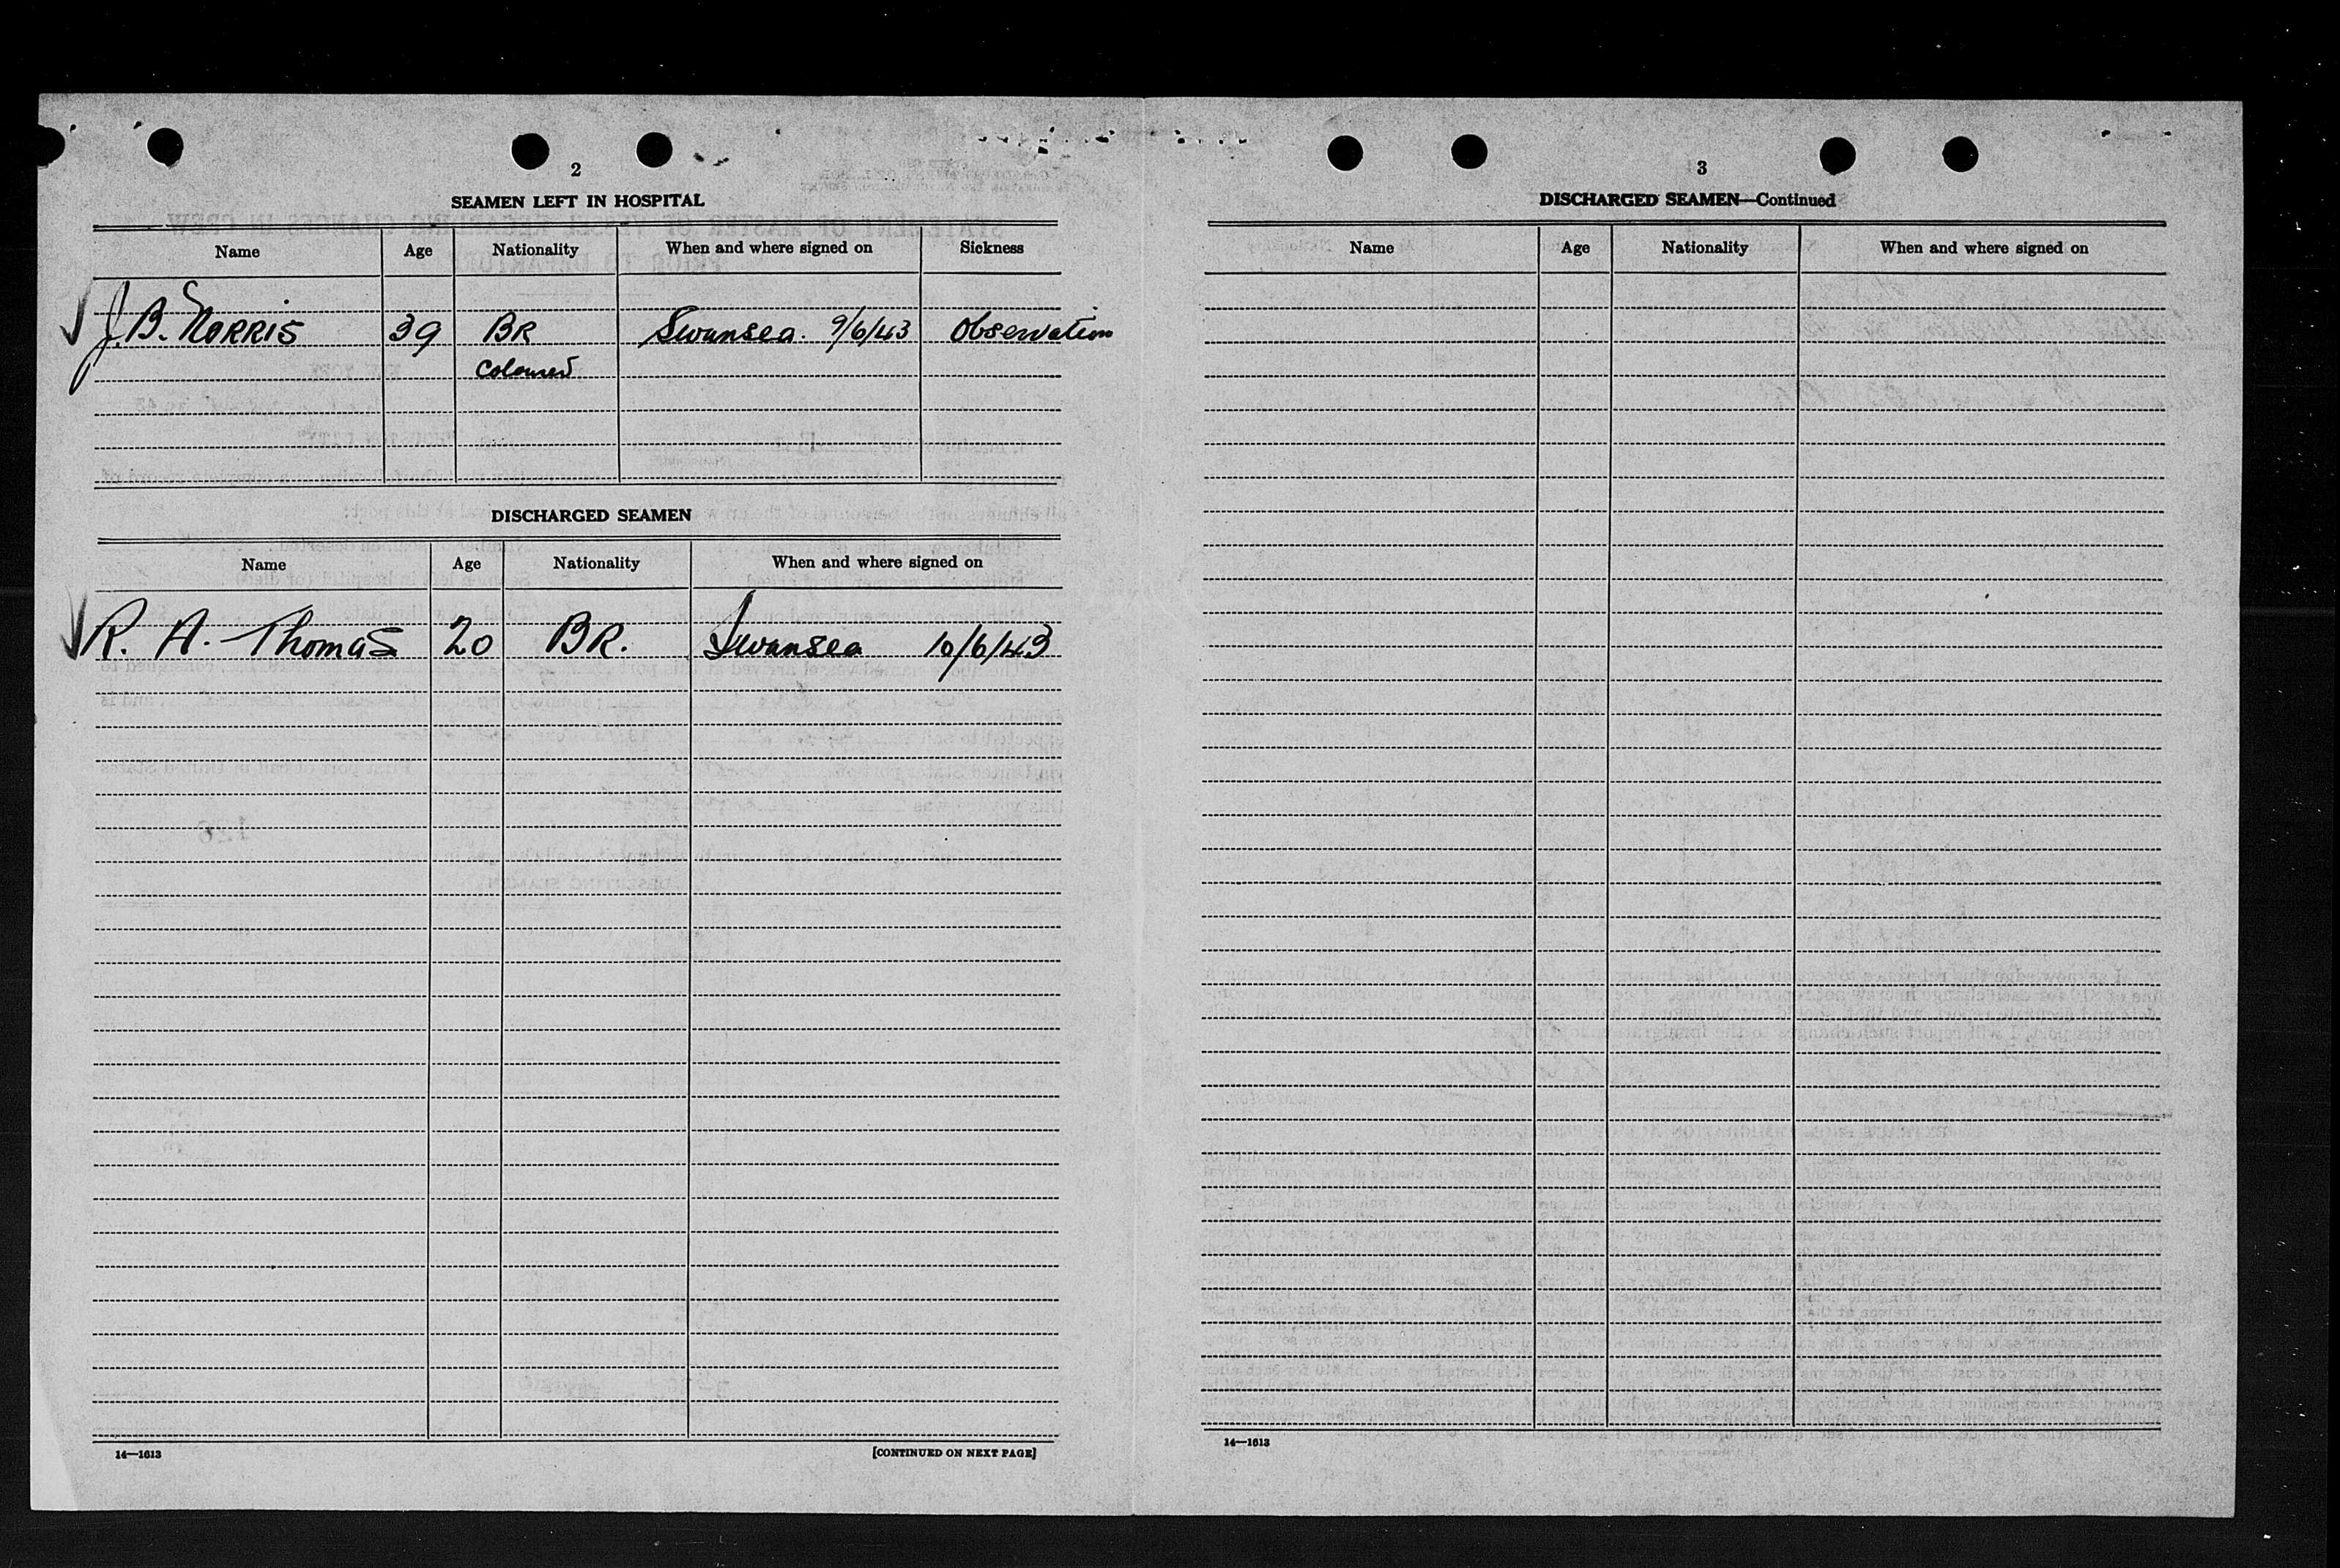 2
SEAMEN LEFT IN HOSPITAL
Name Age Nationality When and where signed on Sickness
J. B. NORRIS 39 BR Swansea. 9/6/43 Observation
Coloured
DISCHARGED SEAMEN
Name Age Nationality When and where signed on
R. A. Thomas 20 BR. Swansea 10/6/43
14—1613 [CONTINUED ON NEXT PAGE]
3
DISCHARGED SEAMEN—Continued
Name Age Nationality When and where signed on
14—1613